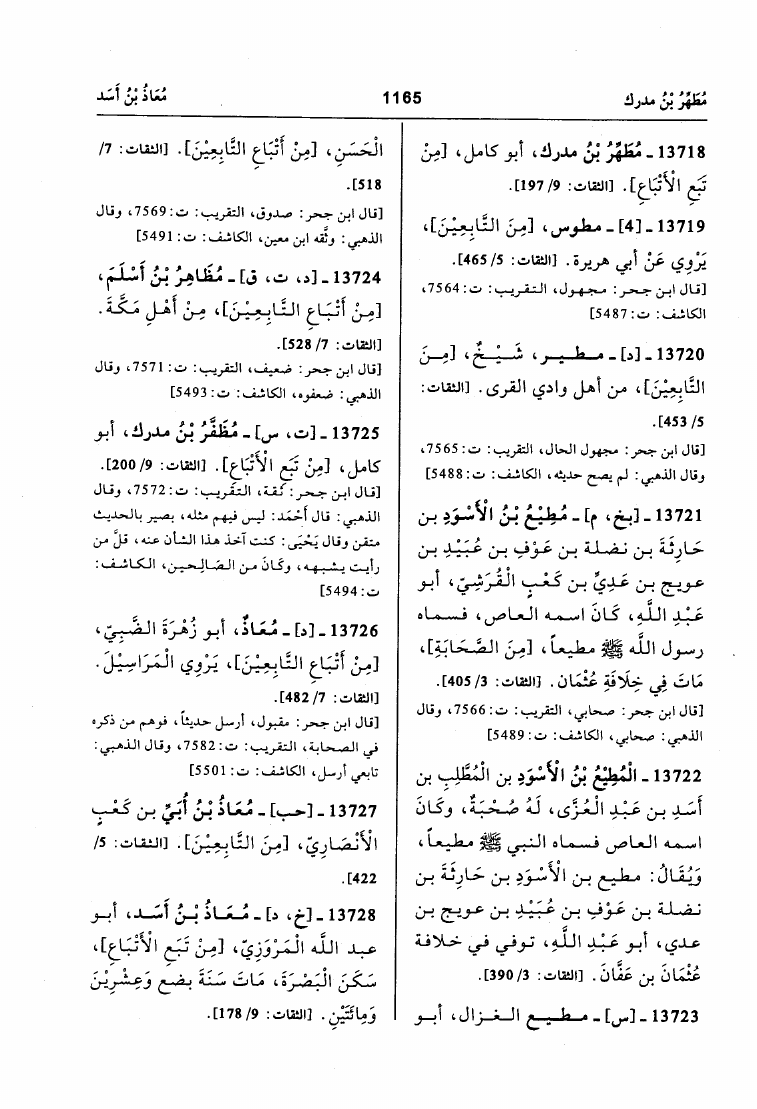 مُطَهَّرُ بْنُ مدرك
1165
مُعَاذُ بْنُ أَسَد
13718 ـ مُطَهَّرُ بْنُ مدرك، أبو كامل، [مِنْ
تَبَعِ الْأَتْبَاعِ]. [الثقات: 9/ 197].
13719 ـ [4] ـ مطوس، [مِنَ التَّابِعِيْنَ]،
يَرْوِي عَنْ أبي هريرة. [الثقات: 5/ 465].
[قال ابن حجر: مجهول، التقريب: ت: 7564،
الكاشف: ت: 5487]
13720 ـ [د] ـ مطير، شَيْخٌ، [مِنَ
التَّابِعِيْنَ]، من أهل وادي القرى. [الثقات:
5/ 453].
[قال ابن حجر: مجهول الحال، التقريب: ت: 7565،
وقال الذهبي: لم يصح حديثه، الكاشف: ت: 5488]
13721 ـ [بخ، م] ـ مُطِيْعُ بْنُ الْأَسْوَدِ بن
حَارِثَةَ بن نضلة بن عَوْفِ بن عُبَيْدِ بن
عويج بن عَدِيِّ بن كَعْبٍ الْقُرَشِيّ، أبو
عَبْدِ اللَّهِ، كَانَ اسمه العاص، فسماه
رسول الله ﷺ مطيعاً، [مِنَ الصَّحَابَةِ]،
مَاتَ فِي خِلَافَةِ عُثْمَان. [الثقات: 3/ 405].
[قال ابن حجر: صحابي، التقريب: ت: 7566، وقال
الذهبي: صحابي، الكاشف: ت: 5489]
13722 ـ الْمُطِيْعُ بْنُ الْأَسْوَدِ بن الْمُطَّلِبِ بن
أَسَدِ بن عَبْدِ الْعُزَّى، لَهُ صُحْبَةٌ، وكَانَ
اسمه العاص فسماه النبي ﷺ مطيعاً،
وَيُقَالُ: مطيع بن الْأَسْوَدِ بن حَارِثَةَ بن
نضلة بن عَوْفِ بن عُبَيْدِ بن عويج بن
عدي، أبو عَبْدِ اللَّهِ، توفي في خلافة
عُثْمَانَ بن عَفَّانَ. [الثقات: 3/ 390].
13723 ـ [س] ـ مطيع الغزال، أبو
الْحَسَنِ، [مِنْ أَتْبَاعِ التَّابِعِيْنَ]. [الثقات: 7/
518].
[قال ابن حجر: صدوق، التقريب: ت: 7569، وقال
الذهبي: وثَّقه ابن معين، الكاشف: ت: 5491]
13724 ـ [د، ت، ق] ـ مُظَاهِرُ بْنُ أَسْلَمَ،
[مِنْ أَتْبَاعِ التَّابِعِيْنَ]، مِنْ أَهْلِ مَكَّةَ.
[الثقات: 7/ 528].
[قال ابن حجر: ضعيف، التقريب: ت: 7571، وقال
الذهبي: ضعفوه، الكاشف: ت: 5493]
13725 ـ [ت، س] ـ مُظَفَّرُ بْنُ مدرك، أبو
كامل، [مِنْ تَبَعِ الْأَتْبَاعِ]. [الثقات: 9/ 200].
[قال ابن حجر: ثقة، التقريب: ت: 7572، وقال
الذهبي: قال أَحْمَد: ليس فيهم مثله، بصير بالحديث
متقن وقال يَحْيَى: كنت آخذ هذا الشأن عنه، قلَّ من
رأيت يشبهه، وكَانَ من الصَّالِحين، الكاشف:
ت: 5494]
13726 ـ [د] ـ مُعَاذٌ، أبو زُهْرَةَ الضَّبِّيّ،
[مِنْ أَتْبَاعِ التَّابِعِيْنَ]، يَرْوِي الْمَرَاسِيْلَ.
[الثقات: 7/ 482].
[قال ابن حجر: مقبول، أرسل حديثاً، فوهم من ذكره
في الصحابة، التقريب: ت: 7582، وقال الذهبي:
تابعي أرسل، الكاشف: ت: 5501]
13727 ـ [حب] ـ مُعَاذُ بْنُ أُبَيِّ بن كَعْبٍ
الْأَنْصَارِيّ، [مِنَ التَّابِعِيْنَ]. [الثقات: 5/
422].
13728 ـ [خ، د] ـ مُعَاذُ بْنُ أَسَد، أبو
عبد الله الْمَرْوَزِيّ، [مِنْ تَبَعِ الْأَتْبَاعِ]،
سَكَنَ الْبَصْرَةَ، مَاتَ سَنَةَ بضع وَعِشْرِيْنَ
وَمِائَتَيْنِ. [الثقات: 9/ 178].